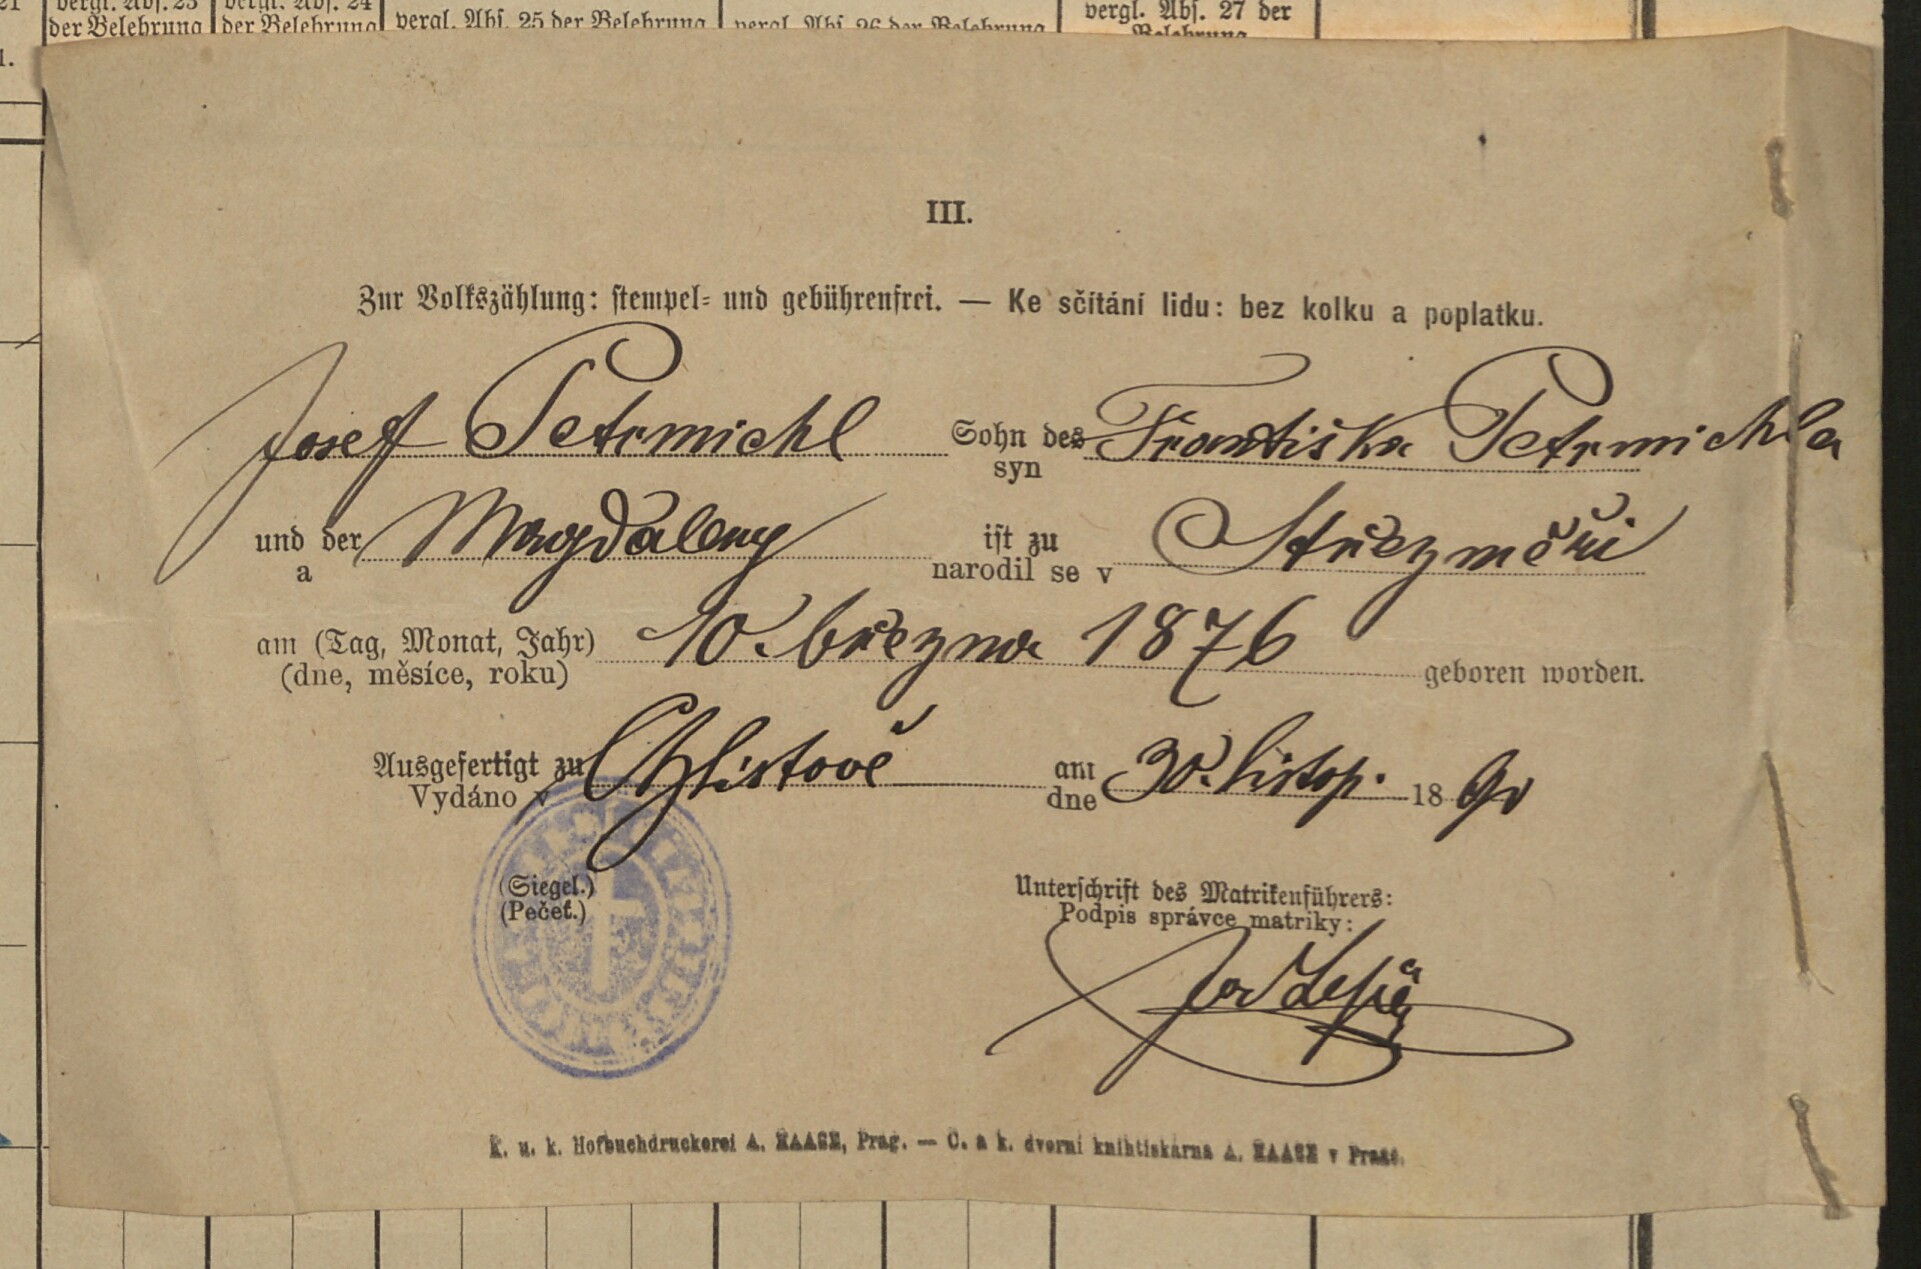 vergl. Abs. 23 der Belehrung
vergl. Abs. 24 der Belehrung
vergl. Abs. 25 der Belehrung
vergl. Abs. 26 der Belehrung
vergl. Abs. 27 der Belehrung
III.
Zur Volkszählung: stempel- und gebührenfrei. — Ke sčítání lidu: bez kolku a poplatku.
Josef Petrmichl Sohn des Františka Petrmichla
syn
und der Magdaleny ist zu Střezměři
a narodil se v
am (Tag, Monat, Jahr) 10. března 1876 geboren worden.
(dne, měsíce, roku)
Ausgefertigt zu Chlistově am 30. listop. 1890
Vydáno v dne
(Siegel.)
(Pečeť.)
Unterschrift des Matrikenführers:
Podpis správce matriky:
K. u. k. Hofbuchdruckerei A. HAASE, Prag. — C. a k. dvorní knihtiskárna A. HAASE v Praze.